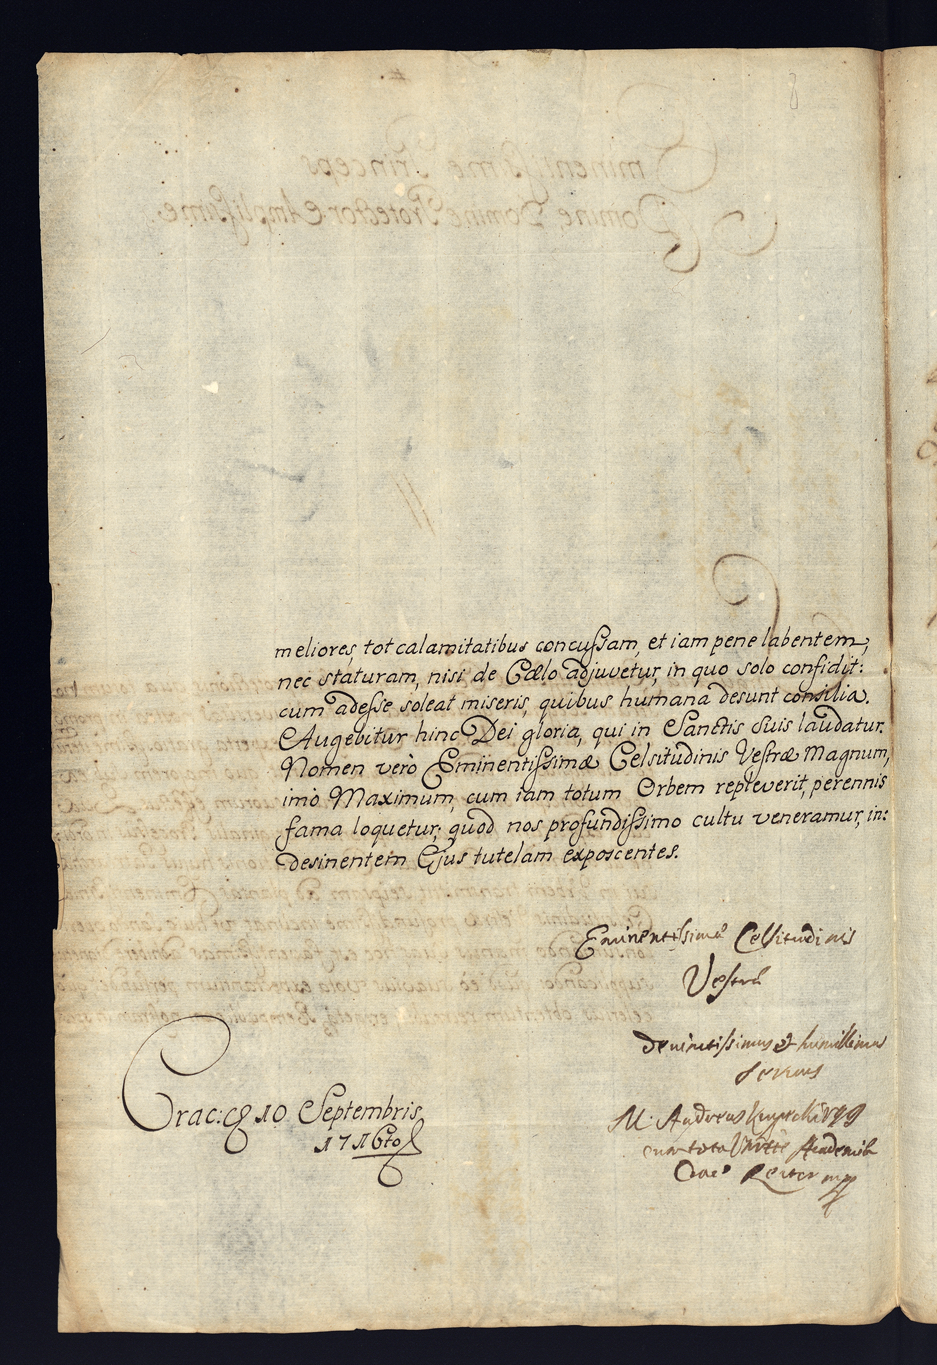 8
meliores, tot calamitatibus concussam, et iam pene labentem,
nec staturam, nisi de Cælo adjuvetur, in quo solo confidit:
cum adesse soleat miseris, quibus humana desunt consilia.
Augebitur hinc Dei gloria, qui in Sanctis suis laudatur.
Nomen verò Eminentissimæ Celsitudinis Vestræ Magnum,
imò Maximum, cum iam totum Orbem repleverit, perennis
fama loquetur; quod nos profundissimo cultu veneramur, in:
desinentem Ejus tutelam exposcentes.
Eminentissimæ Celsitudinis
Vestræ
devinctissimus et humillimus
servus
Crac: 10 Septembris
1716to
M. Andreas
cum tota Academia
Crac: Rector mpp